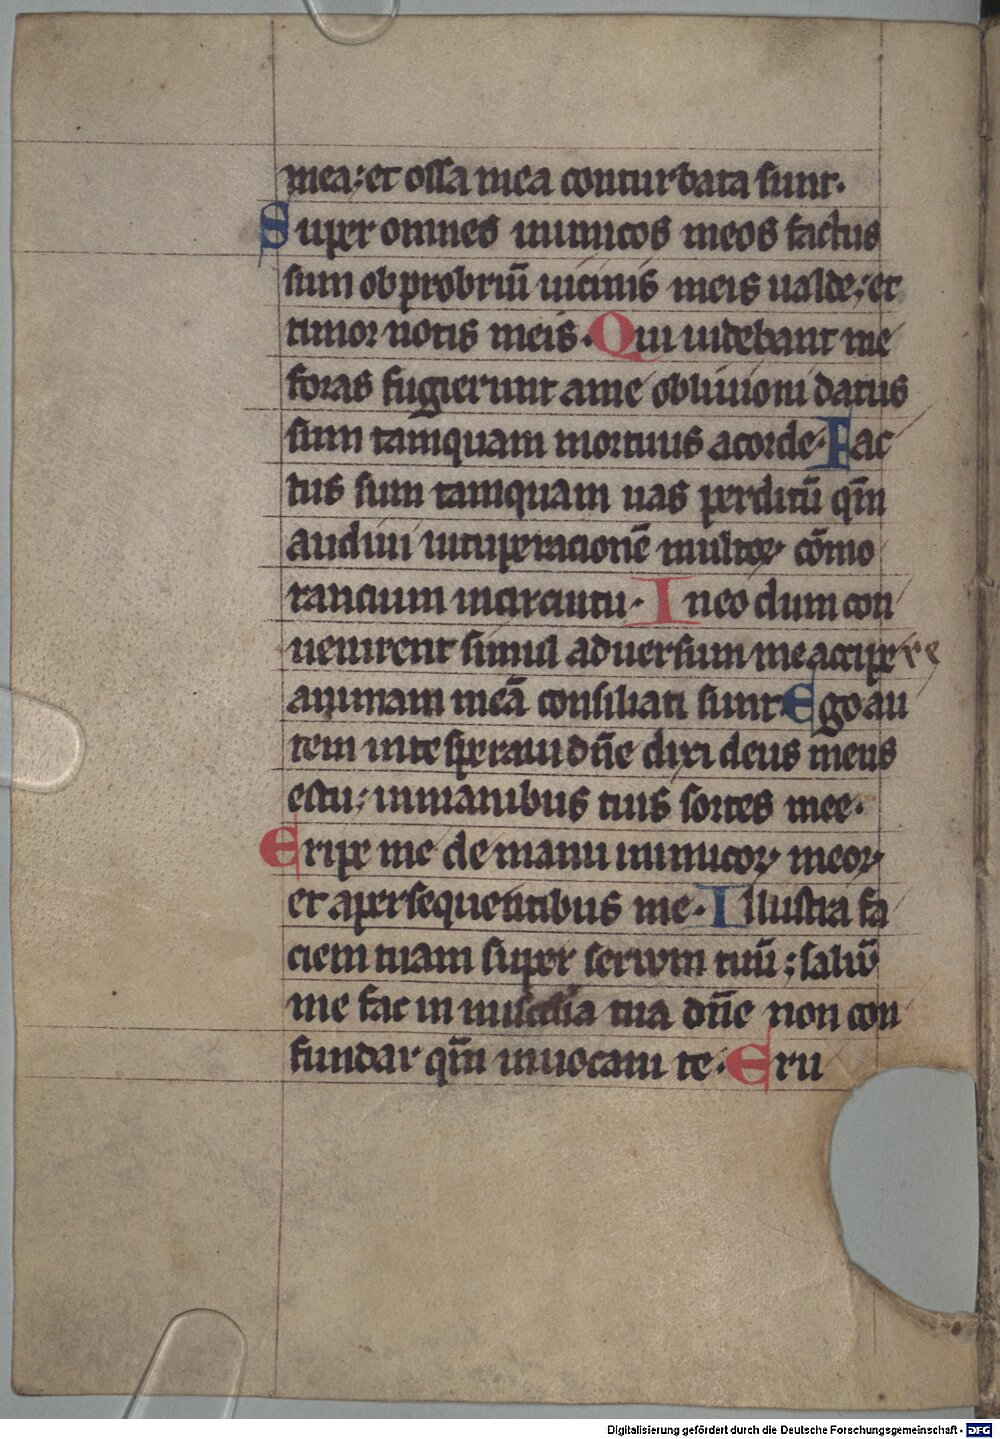 mea; et ossa mea conturbata sunt.
Super omnes inimicos meos factus
sum obprobriū uicinis meis ualde; et
timor notis meis. Qui uidebant me
foras fugierunt ame obliuioni datus
sum tamquam mortuus acorde. Fac
tus sum tamquam uas perditū qm̄
audiui uituperacionē multoꝝ cōmo
rancium incircuitu. Ineo dum con
uenirent simul aduersum me accipere
animam meā consiliati sunt Ego au
tem inte speraui dn̄e dixi deus meus
estu; inmanibus tuis sortes mee.
Eripe me de manu inimicoꝝ meoꝝ
et apersequentibus me. Illustra fa
ciem tuam super seruum tuū; saluū
me fac in misc̄dia tua dn̄e non con
fundar qm̄ inuocaui te. Eru
Digitalisierung gefördert durch die Deutsche Forschungsgemeinschaft - DFG